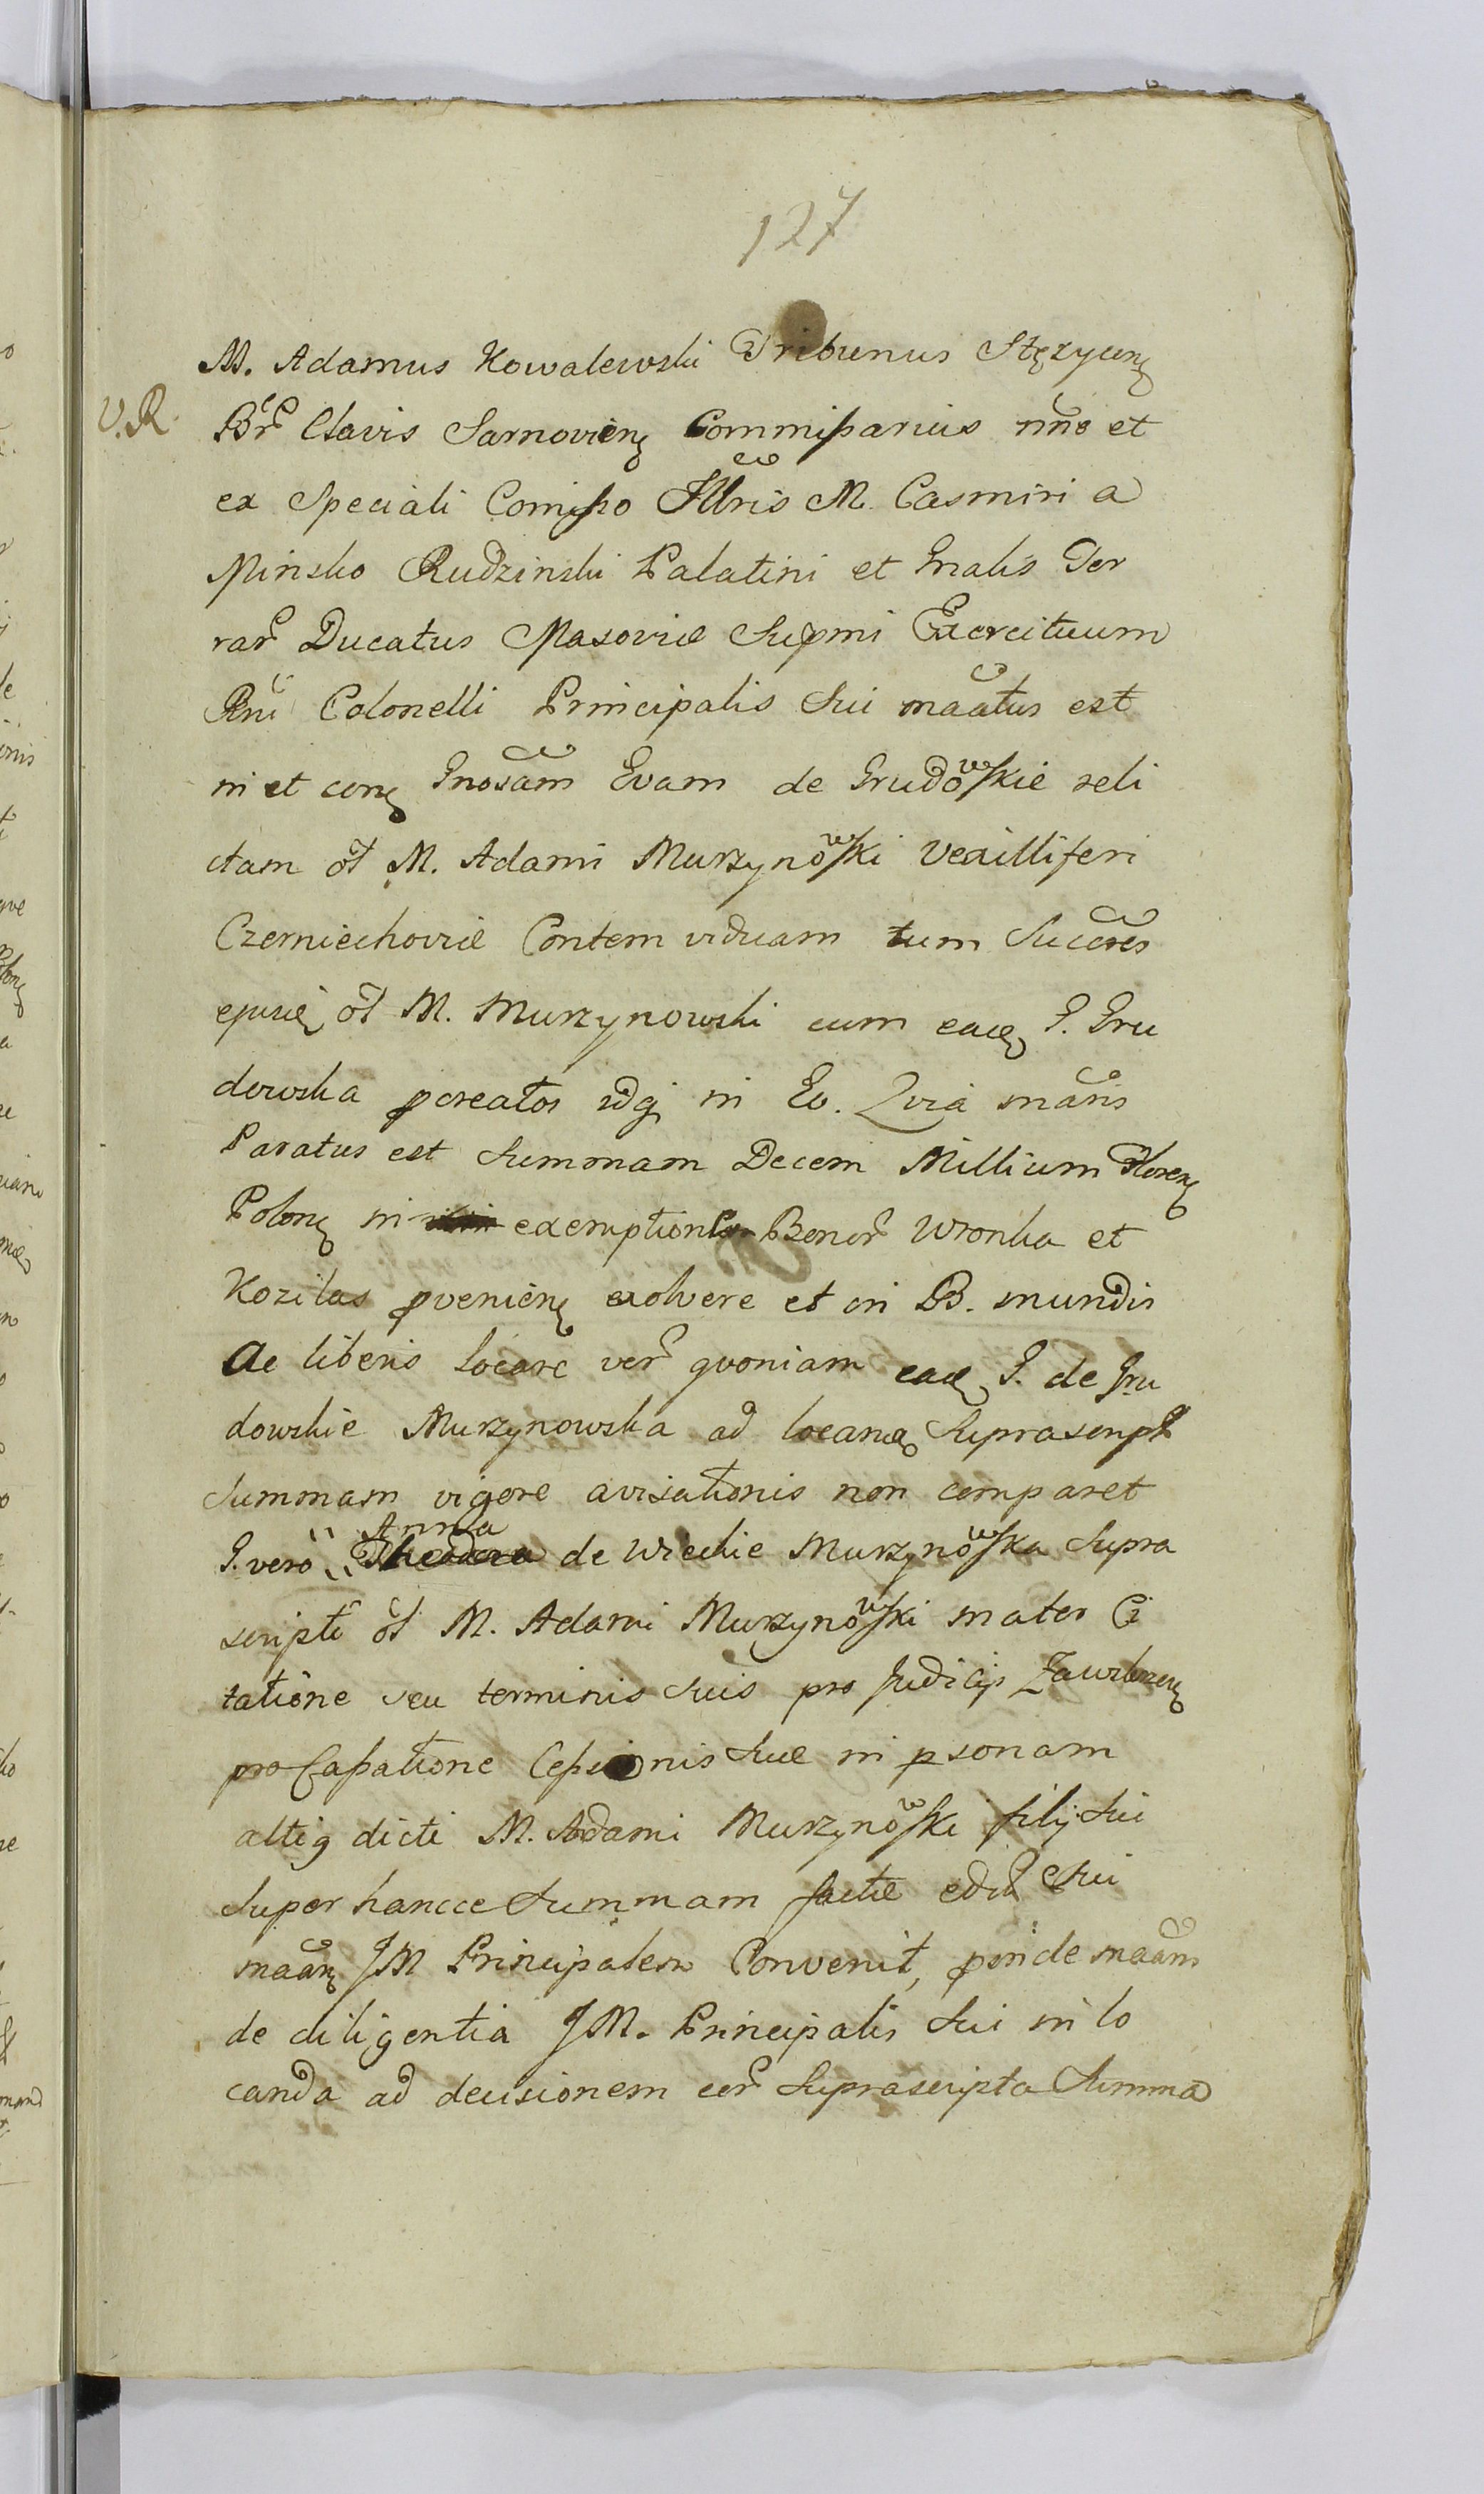 127
M. Adamus Kowalewski Tribunus Stęzyceń
V.R. Br̃ Clavis Sarnovień Commissarius nñe et
ex Speciali Comisso Illris M. Casmiri a
Minsko Rudzinski Palatini et Gnalis Ter
rar̃ Ducatus Masoviæ Supmi Exercituum
Rni Colonelli Principalis Sui maatus est
in et con Gnosam Evam de Grudowskie reli
ctam ol M. Adami Murzynowski Vexilliferi
Czerniechoviæ Contem viduam tum Succres
ejusd ol M. Murzynowski cum ead G. Gru
dowska pcreatos idq in Ev. Qvia mãns
Paratus est Summam Decem Millium Floren
Polon in exemptione Bonor̃ Wronka et
Kozilas pvenień exolvere et in B. mundis
ac liberis locare ver̃ qvoniam ead G. de Gru
dowskie Murzynowska ad locand Suprascript
Summam vigore avisationis non comparet
G. vero Anna Theodora de Wieckie Murzynowska Supra
scripti ol M. Adami Murzynowski mater Ci
tatione seu terminis suis pro Judicijs Zawskrzeń
pro Cassatione Cessionis Suæ in psonam
attig dicti M. Adami Murzynowski filij Sui
Super hancce Summam factæ Sui
maan JM Principalem Convenit, pinde maans
de diligentia JM. Principalis Sui in lo
canda ad decisionem cer̃ Suprascripta Summa